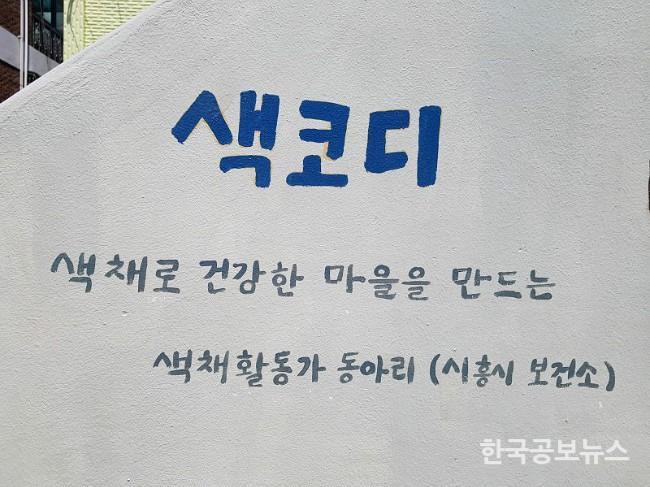 색코디
색채로 건강한 마을을 만드는
색채활동가 동아리 (시흥시 보건소)
한국공보뉴스